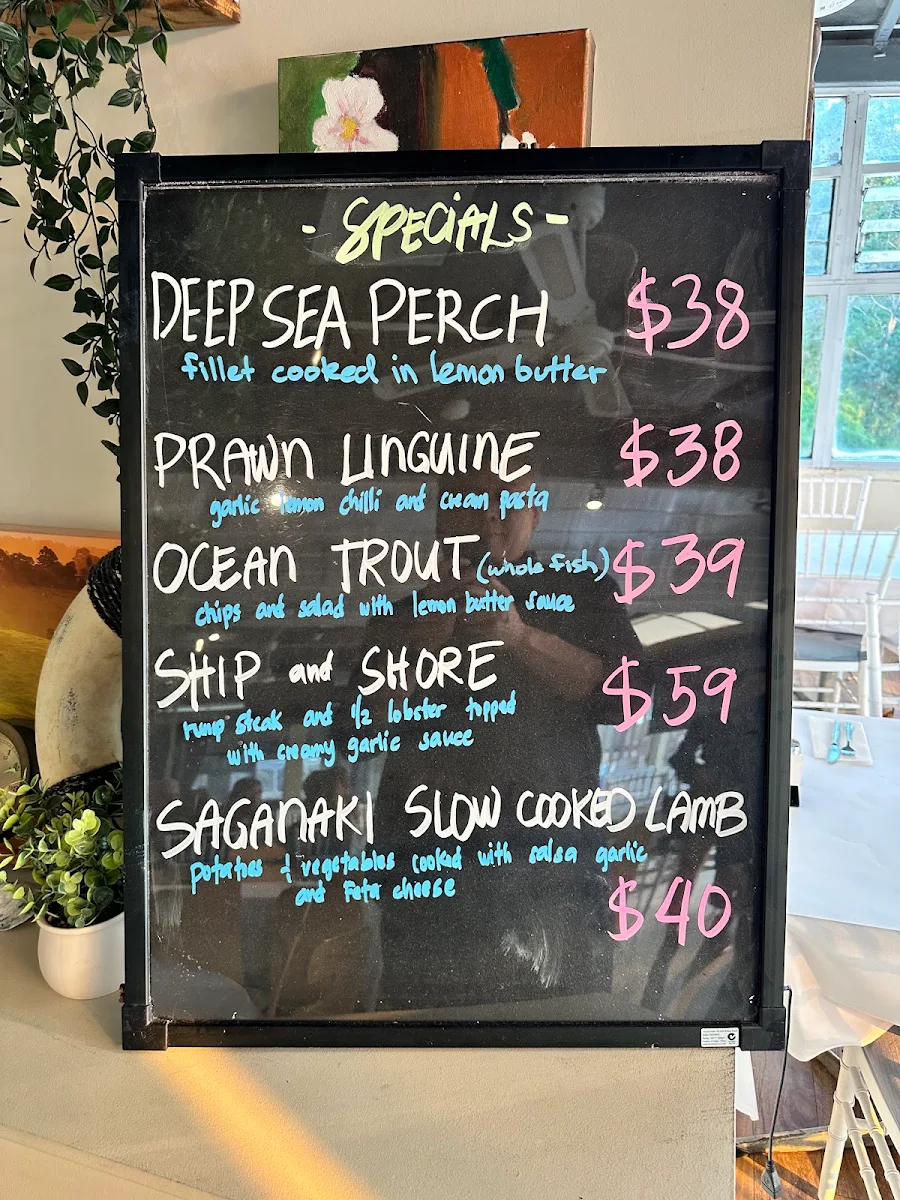 - SPECiALS -
DEEP SEA PERCH $38
fillet cooked in lemon butter
PRAWN LINGUINE $38
garlic lemon chilli and cream pasta
OCEAN TROUT (whole fish) $39
chips and salad with lemon butter sauce
SHIP and SHORE $59
rump steak and 1/2 lobster topped
with creamy garlic sauce
SAGANAKI SLOW COOKED LAMB
potatoes & vegetables cooked with salsa garlic
and feta cheese
$40